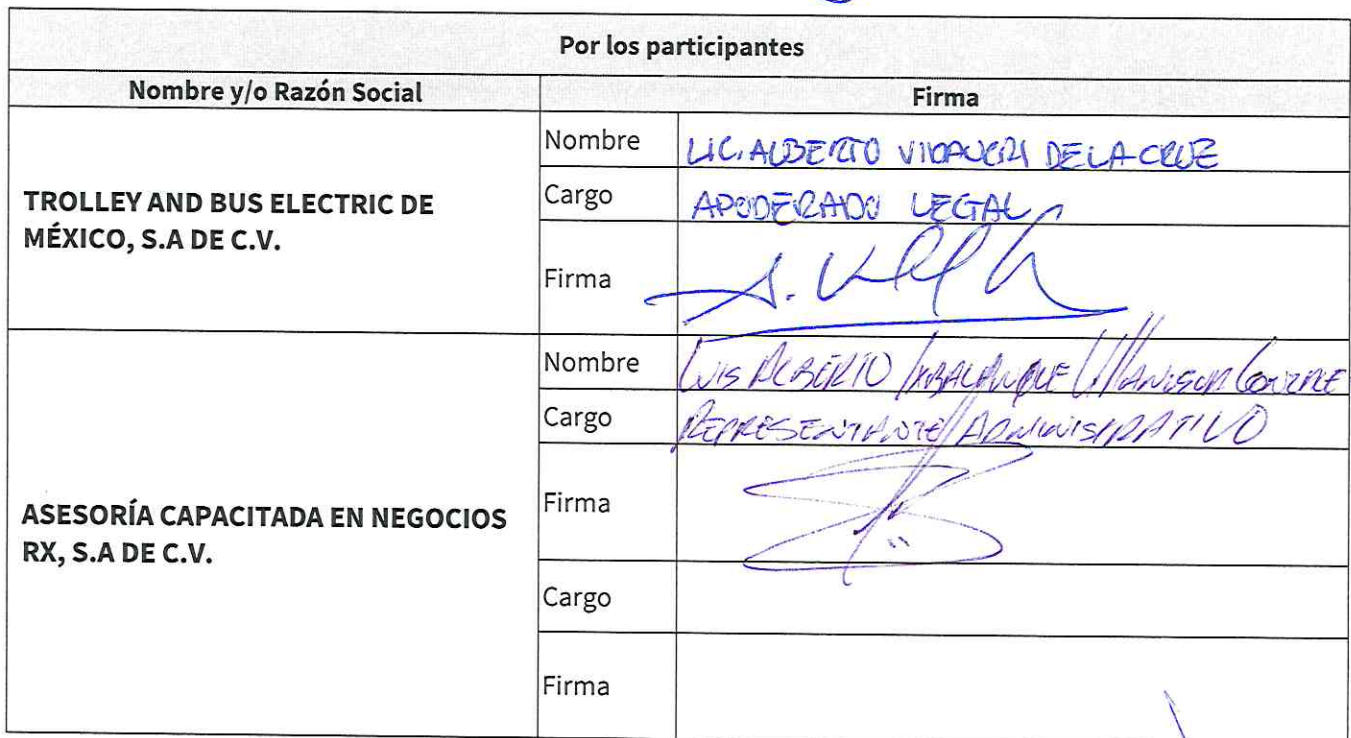 Por los participantes
Nombre y/o Razón Social Firma
TROLLEY AND BUS ELECTRIC DE
MÉXICO, S.A DE C.V.
Nombre LIC. ALBERTO DE LA CRUZ
Cargo APODERADO LEGAL
Firma
ASESORÍA CAPACITADA EN NEGOCIOS
RX, S.A DE C.V.
Nombre LUIS ALBERTO
Cargo REPRESENTANTE ADMINISTRATIVO
Firma
Cargo
Firma